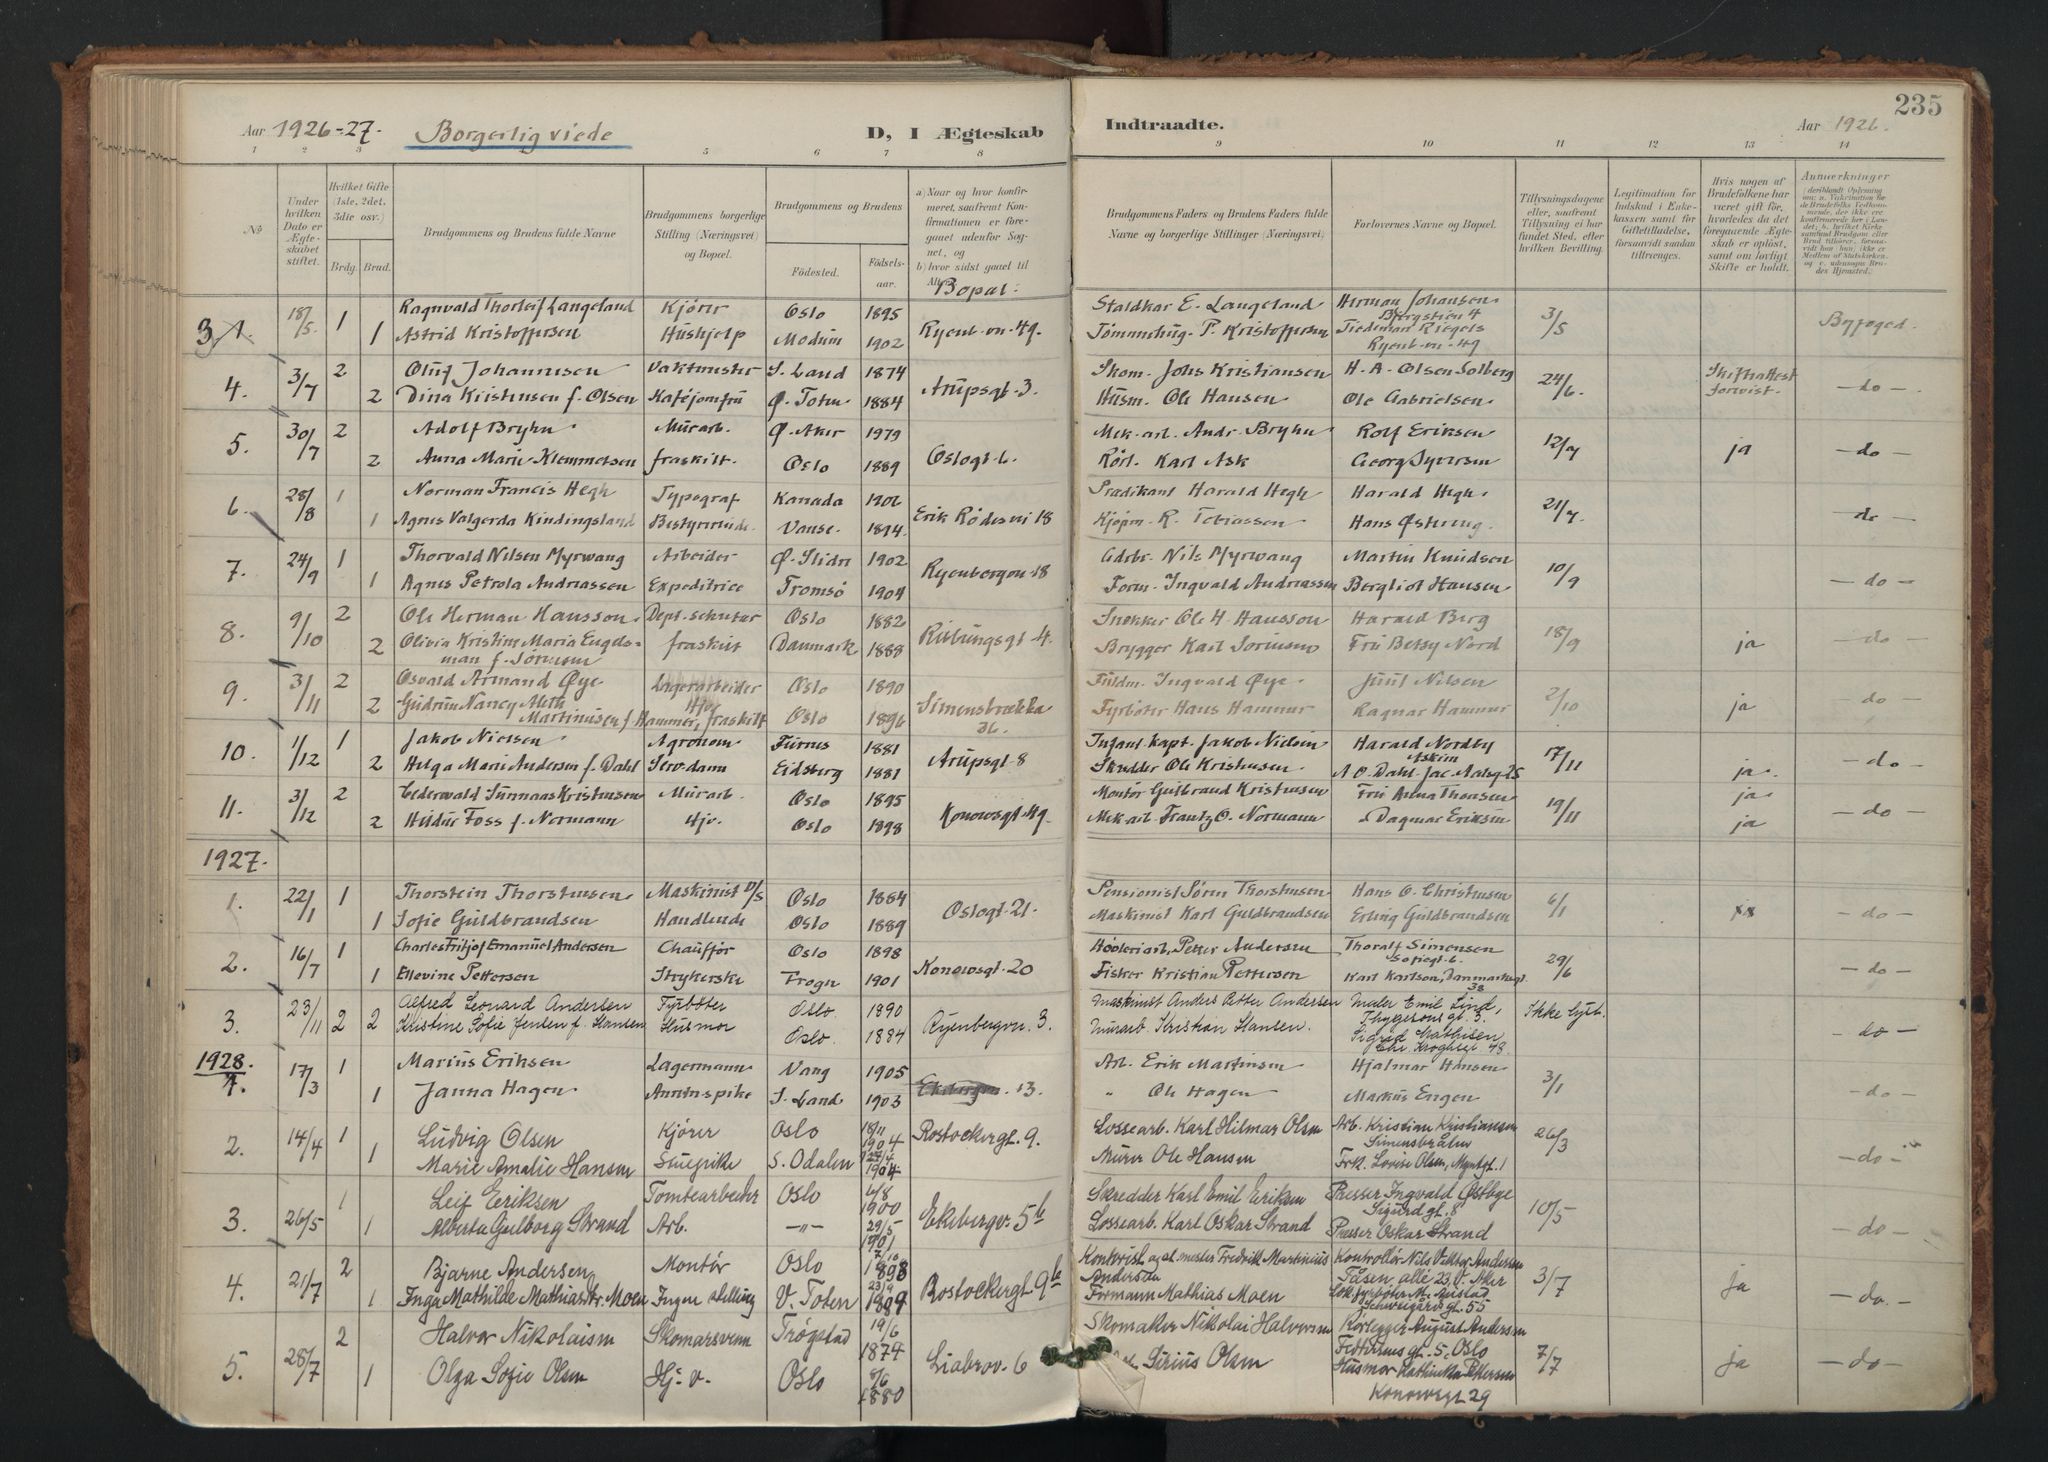 Aar 1926-27. Borgerlig viede D, I Ægteskab
Indtraadte. Aar 1926. 235
1 2 3 5 6 7 8 9 10 11 12 13 14
No
Under hvilken Dato er Ægteskabet stiftet.
Hvilket Gifte (1ste, 2det, 3die osv.)
Brdg. Brud.
Brudgommens og Brudens fulde Navne
Brudgommens borgerlige Stilling (Næringsvei) og Bopæl.
Brudgommens og Brudens
Fødested. Fødselsaar.
a) Naar og hvor konfirmeret, saafremt Konfirmationen er foregaaet udenfor Sognet, og
b) hvor sidst gaaet til
Bopæl.
Brudgommens Faders og Brudens Faders fulde Navne og borgerlige Stillinger (Næringsvei)
Forlovernes Navne og Bopæl.
Tillysningsdagene eller, saafremt Tillysning ei har fundet Sted, efter hvilken Bevilling.
Legitimation for Indskud i Enkekassen samt for Giftetilladelse, forsaavidt saadan tiltrænges.
Hvis nogen af Brudefolkene har været gift før, hvorledes da det foregaaende Ægteskab er opløst, samt om lovligt Skifte er holdt.
Anmerkninger
3 18/5 1 Ragnvald Thorleif Langeland Kjører Oslo 1895 Staldkar E. Langeland Herman Johansen 3/5 Byfoged.
Bergstien 4
1 Astrid Kristoffersen Hushjelp Modum 1902 Ryenb.vn. 49. Tømmerhug. P. Kristoffersen Tiedeman Riegels
Ryenb.vn. 49
4. 3/7 2 Oluf Johannesen Vaktmester S. Land 1874 Arupsgt. 3. Skom. Johs Kristiansen H. A. Olsen Solberg 24/6 Skifteattest forevist. -do-
2 Dina Kristensen f. Olsen Kaféjomfru Ø. Toten 1884 Husm. Ole Hansen Ole Gabrielsen
5. 30/7 2 Adolf Bryhn Murarb. Ø. Aker 1979 Oslogt. 6. Mek. arb. Andr. Bryhn Rolf Eriksen 12/7 ja -do-
2 Anna Marie Klemmetsen fraskilt. Oslo 1889 Rørl. Karl Ask Georg Syversen
6. 28/8 1 Norman Francis Hegh Typograf Kanada 1902 Erik Rødes vei 18 Prædikant Harald Hegh Harald Hegh. 21/7 -do-
1 Agnes Valgerda Kindingsland Bestyrerinde. Vanse. 1894. Kjøpm. R. Tobiassen Hans Østreng.
7. 24/9 1 Thorvald Nilsen Myrwang Arbeider Ø. Slidre 1902 Ryenbergvn. 18 Gdbr. Nils Myrwang Martin Knudsen 10/9 -do-
1 Agnes Petrola Andreassen Expeditrice Tromsø 1904 Form. Ingvald Andreassen Bergliot Hansen
8. 9/10 2 Ole Herman Hansson Oslo 1882 Snekker Ole H. Hansson Harald Berg 18/9 ja -do-
2 Olivia Kristine Maria Engelsman f. Sørensen fraskilt Danmark 1888 Brygger Karl Sørensen Fru Betsy Nord
9. 3/11 2 Osvald Armand Øye Lagerarbeider Oslo 1890 Simensbrækka 36. Fuldm. Ingvald Øye. Juul Nilsen 2/10 ja -do-
2 Gudrun Nancy Meth Martinusen f. Hammer, fraskilt Oslo 1896 Fyrbøter Hans Hammer Ragnar Hammer
10. 1/12 1 Jakob Nielsen Agronom Furnes 1881 Arupsgt. 8 Infant. kapt. Jakob Nielsen Harald Nordby 17/11 ja. -do-
Askim
2 Helga Marie Andersen f. Dahl Serv.dame Eidsberg 1881 Skredder Ole Kristensen A. O. Dahl. Jac. Aalsg. 25
11. 3/12 2 Cederwald Sunnaas Kristensen Murarb. Oslo 1895 Konowsgt. 49. Montør Gulbrand Kristensen Fru Anna Thorsen 19/11 ja -do-
2 Huldur Foss f. Normann Hjv. Oslo 1898 Mek. arb. Frantz O. Normann Dagmar Eriksen ja
1927.
1. 22/1 1 Thorstein Thorstensen Maskinist D/S Oslo 1884 Oslogt. 21. Pensionist Søren Thorstensen Hans O. Christensen 6/1 -do-
1 Sofie Guldbrandsen Handlende Oslo 1889 Maskinist Karl Guldbrandsen Erling Guldbrandsen
2. 16/7 1 Charles Fritjof Emanuel Andersen Chauffør Oslo 1898 Konowsgt. 20 Høvleriarb. Petter Andersen Thoralf Simensen 29/6 -do-
Sofiegt. 6.
1 Ellevine Pettersen Strykerske Frogn 1901 Fisker Kristian Pettersen Karl Karlson, Danmarksgt. 38
3. 23/11 2 Alfred Leonard Andersen Fyrbøter Oslo. 1890 Ryenbergvn. 3. Maskinist Anders Petter Andersen Maler Emil Lind, Thygesons gt. 3. Ikke lyst. -do-
2 Kristine Sofie Jensen f. Hansen Husmor Oslo. 1884 Murarb. Kristian Hansen. Sigrid Mathisen Chr. Kroghsgt. 48.
1928.
1. 17/3 1 Marius Eriksen Lagermann Vang 1905 13. Arb. Erik Martinsen Hjalmar Hansen 3/1 -do-
1 Janna Hagen S. Land 1903 " Ole Hagen Markus Engen
2. 14/4 1 Ludvig Olsen Kjører Oslo 18/11 1904 Rostockergt. 9. Lossearb. Karl Hilmar Olsen Arb. Kristian Kristiansen 26/3 -do-
1 Marie Amalie Hansen Stuepike S. Odalen 1904 Murer Ole Hansen Frk. Lovise Olsen, Myntgt. 1
3. 26/5 1 Leif Eriksen Tomtearbeider Oslo 6/8 1900 Ekebergv. 5 b Skredder Karl Emil Eriksen Presser Ingvald Østbye Sigurdgt. 8 10/5 -do-
1 Alberta Gulborg Strand Arb. -"- 29/5 1901 Lossearb. Karl Oskar Strand Presser Oskar Strand
4. 21/7 2 Bjarne Andersen Montør Oslo 7/10 1898 Rostockergt. 9 b Fredrik Martinius Andersen Kontrollør Nils Viktor Andersen Tåsen alle 23, V. Aker 3/7 ja -do-
1 Inga Mathilde Mathiasdtr. Moen Ingen stilling V. Toten 23/9 1889 Formann Mathias Moen Schweigårdsgt. 55
5. 28/7 2 Halvor Nikolaisen Skomarsvenn Trøgstad 19/6 1874 Liabrov. 6 Skomaker Nikolai Halvorsen Rørlegger August Andersen 7/7 ja -do-
1 Olga Sofie Olsen Hj. v. Oslo 8/6 1880 Sirius Olsen Husmor Kathinka Pettersen Konowsgt. 29